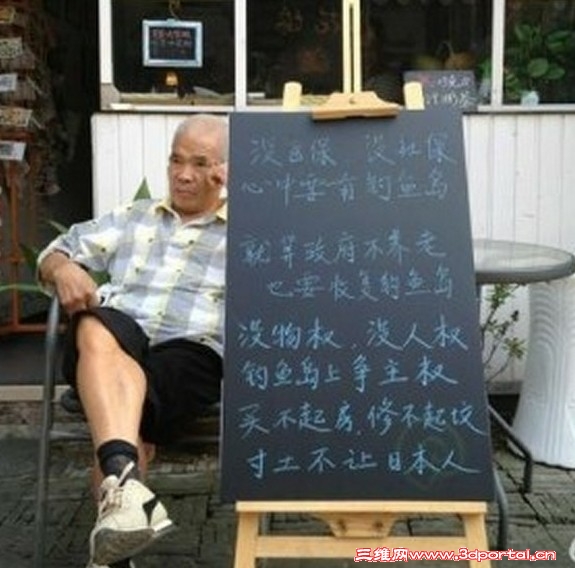 没医保 没社保
心中要有钓鱼岛
就算政府不养老
也要收复钓鱼岛
没物权,没人权
钓鱼岛上争主权
买不起房,修不起坟
寸土不让日本人
三维网www.3dportal.cn